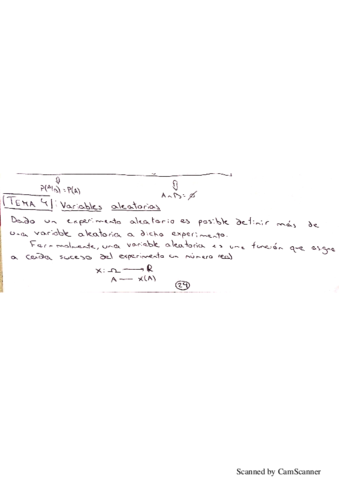 P(A/B) = P(A)
A ∩ B = ∅
TEMA 4: Variables aleatorias
Dado un experimento aleatorio es posible definir más de
una variable aleatoria a dicho experimento.
Formalmente, una variable aleatoria es una función que asigna
a cada suceso del experimento un número real
X: Ω → R
A — X(A)
24
Scanned by CamScanner